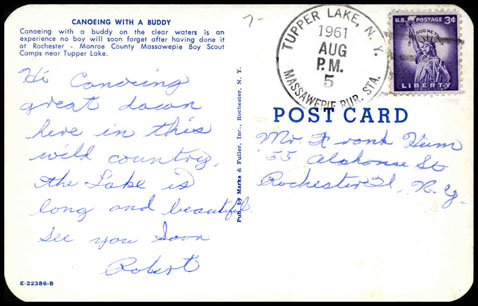 CANOEING WITH A BUDDY
Canoeing with a buddy on the clear waters is an
experience no boy will soon forget after having done it
at Rochester - Monroe County Massawepie Boy Scout
Camps near Tupper Lake.
Hi Canoeing
great down
here in this
wild country.
the Lake is
long and beautiful
See you Soon
Robert
E-22386-B
Pub. by Marks & Fuller, Inc., Rochester, N. Y.
7-
TUPPER LAKE, N.Y.
1961
AUG
P.M.
5
MASSAWEPIE RUR. STA.
U.S. POSTAGE 3¢
IN GOD WE TRUST
LIBERTY
POST CARD
Mr Frank Hum
55 St
Rochester N.Y.